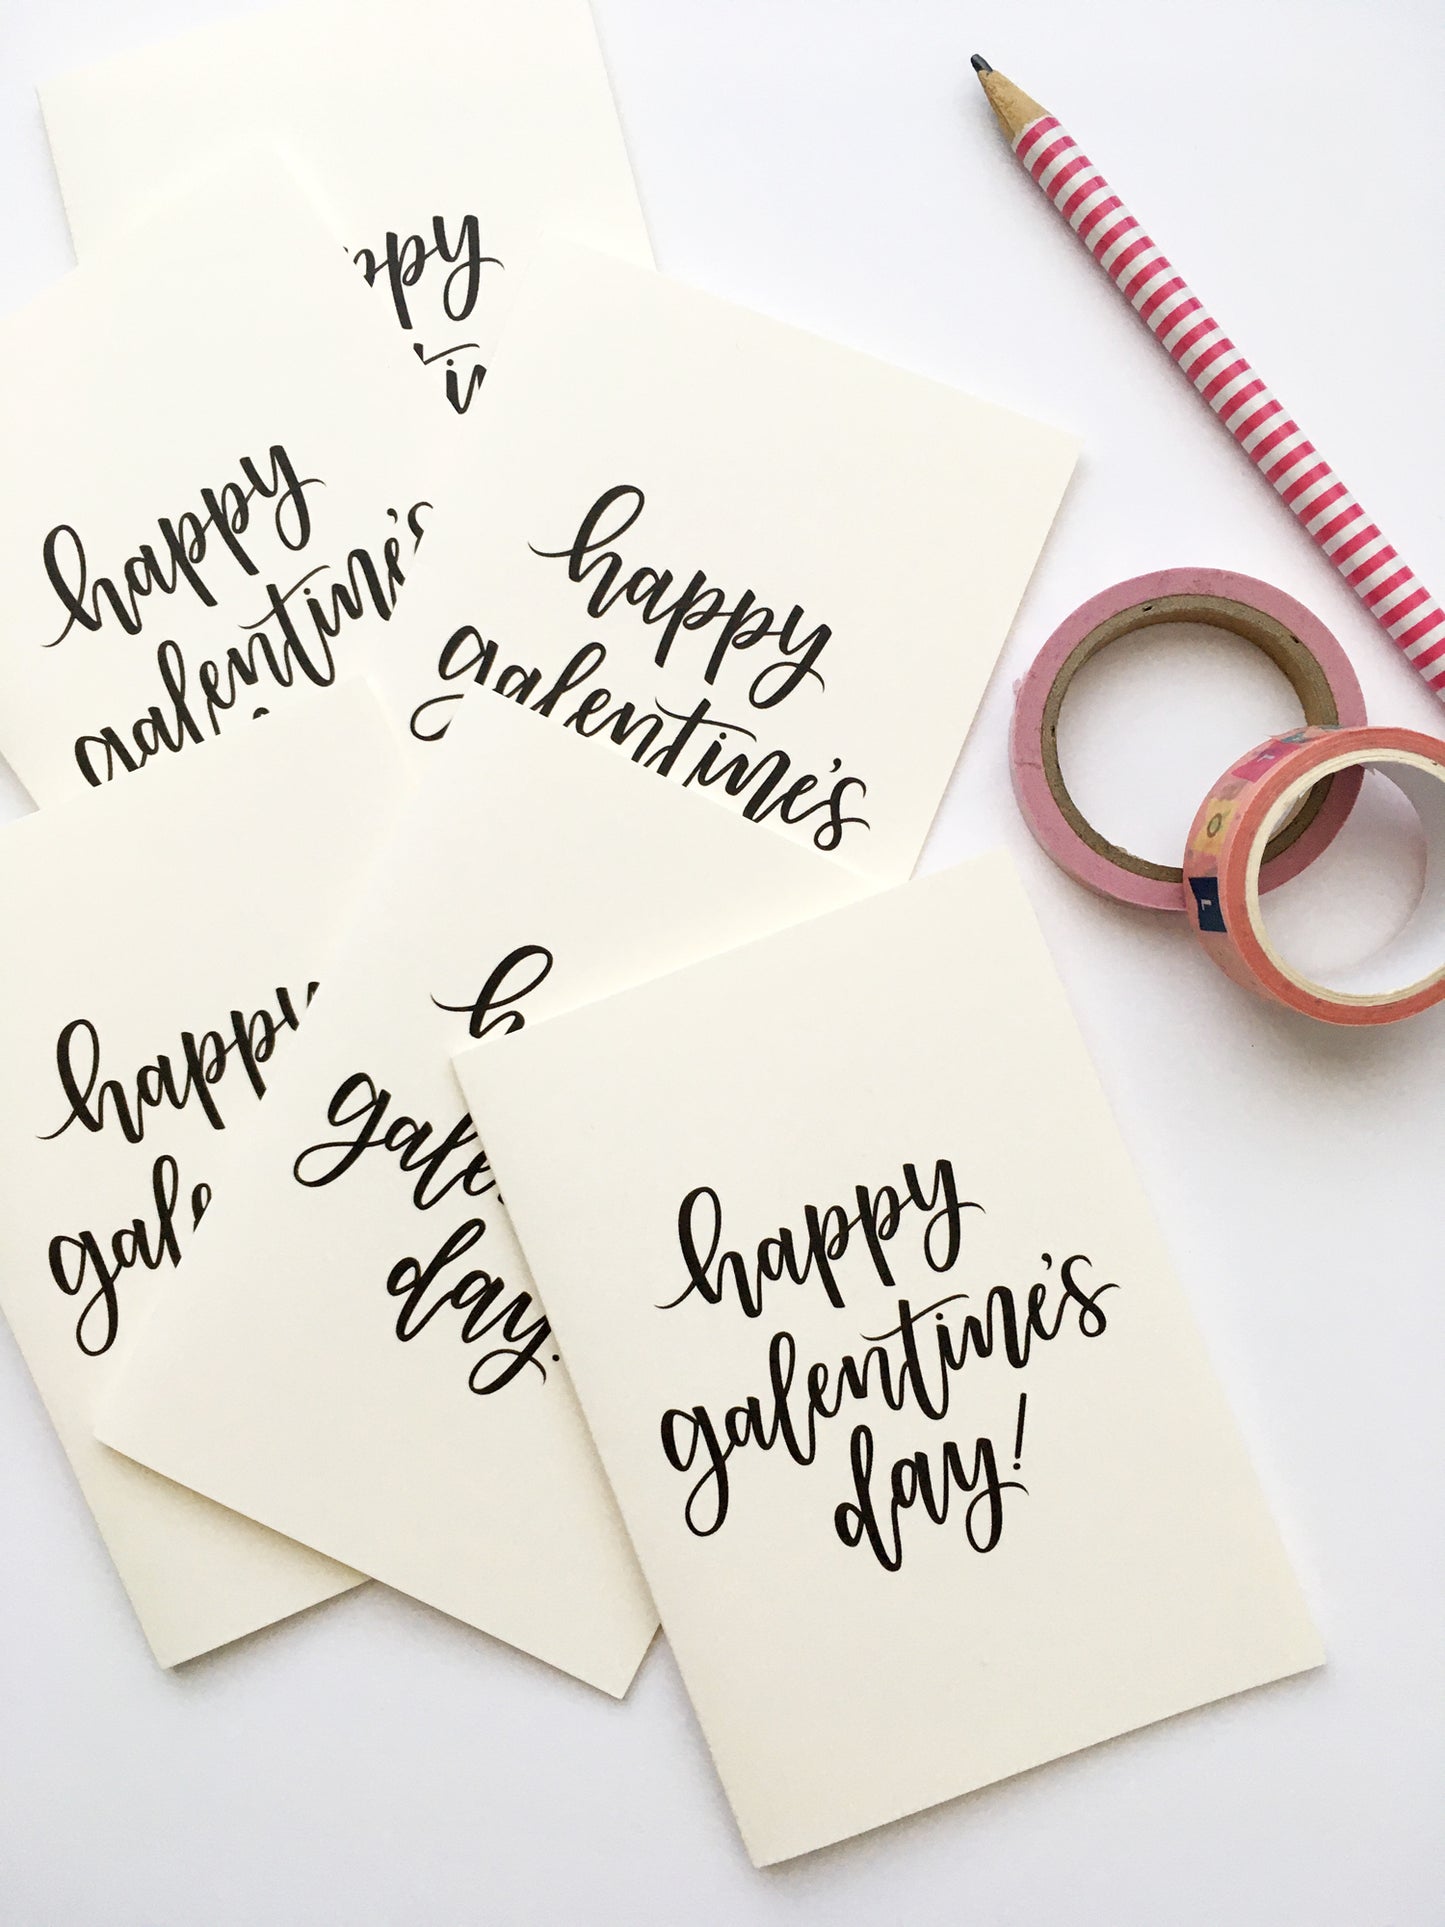 happy
galentine's
happy
galentine's
happy
happy
galentine's
day!
happy
galentine's
day!